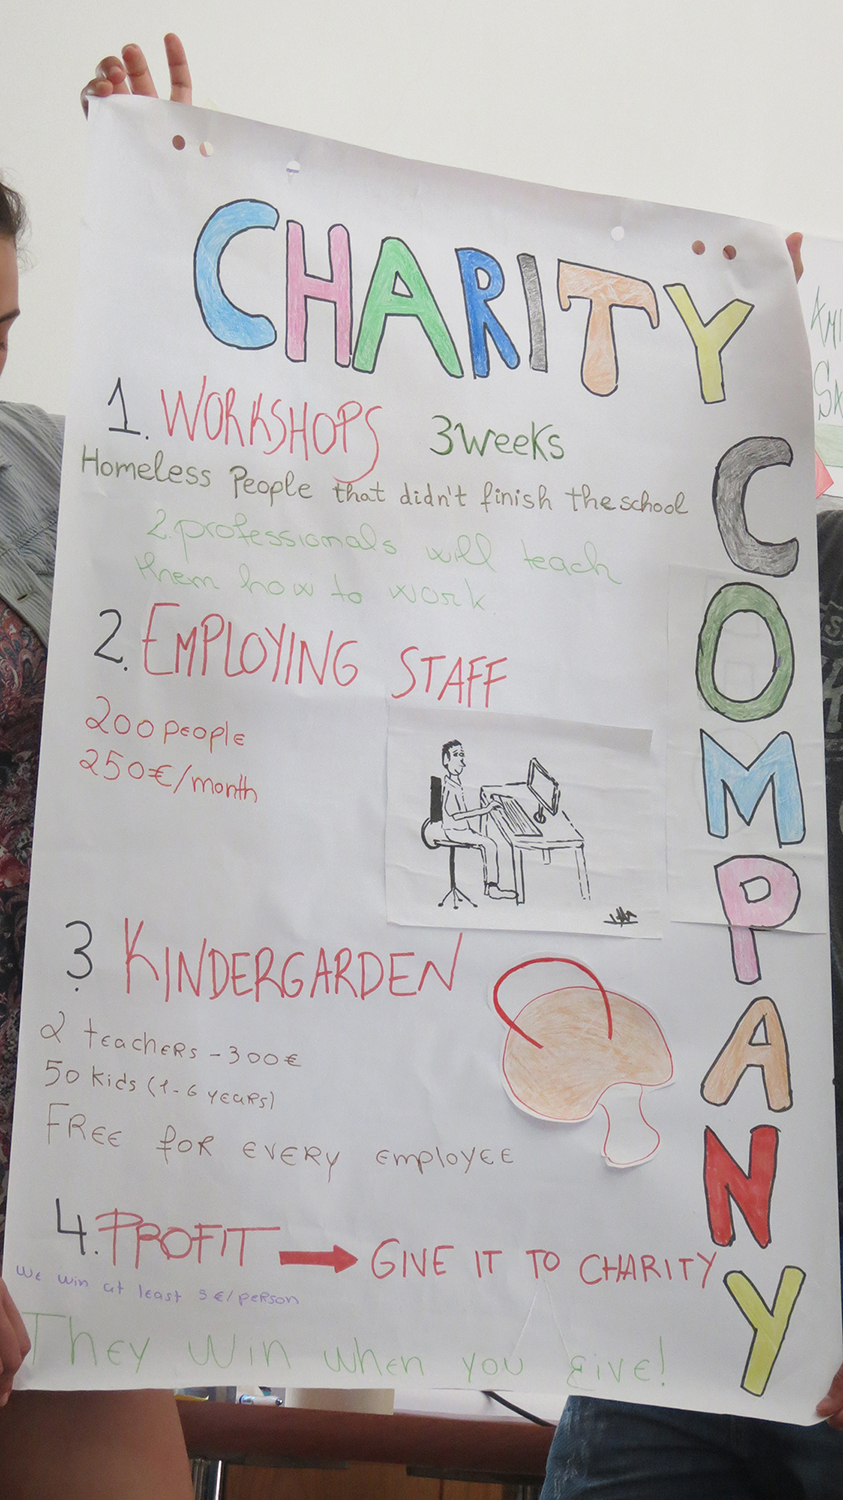 CHARITY
COMPANY
1. WORKSHOPS 3 weeks
Homeless People that didn't finish the school
2 professionals will teach
them how to work
2. EMPLOYING STAFF
200 people
250€/month
3. KINDERGARDEN
2 teachers - 300€
50 kids (1-6 years)
FREE for every employee
4. PROFIT → GIVE IT TO CHARITY
We win at least 5€/person
They win when you give!